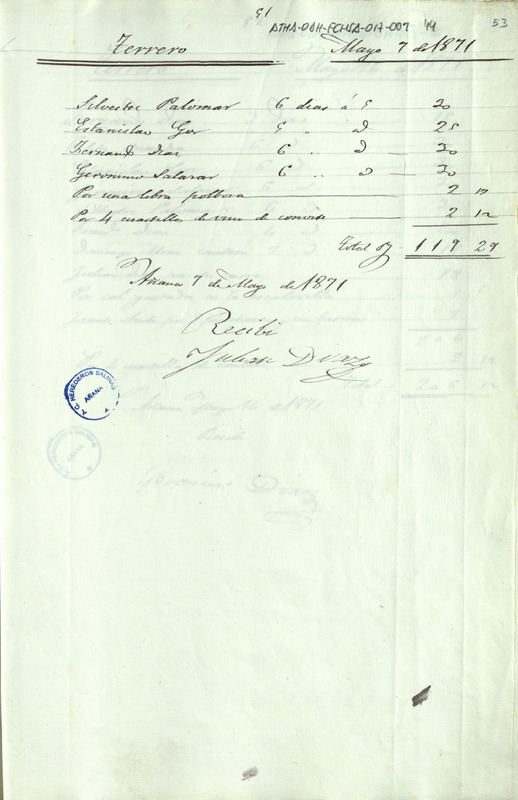 51
ATHA-DAH-FCHSA-017-007 14
53
Terrero Mayo 7 de 1871
Silvestre Palomar 6 dias á 5 30
Estanislao 5 " D 25
Fernando Diaz 6 " D 30
Geronimo Salazar 6 .. D 30
Por una libra polbora 2 17
Por 4 cuartillos de vino de convite 2 12
Total 119 29
Añana 7 de Mayo de 1871
Recibi
Julian Diaz
T. C. HEREDEROS SALINAS
AÑANA
Añana Mayo de 1871
Recibi
Geronimo Diaz